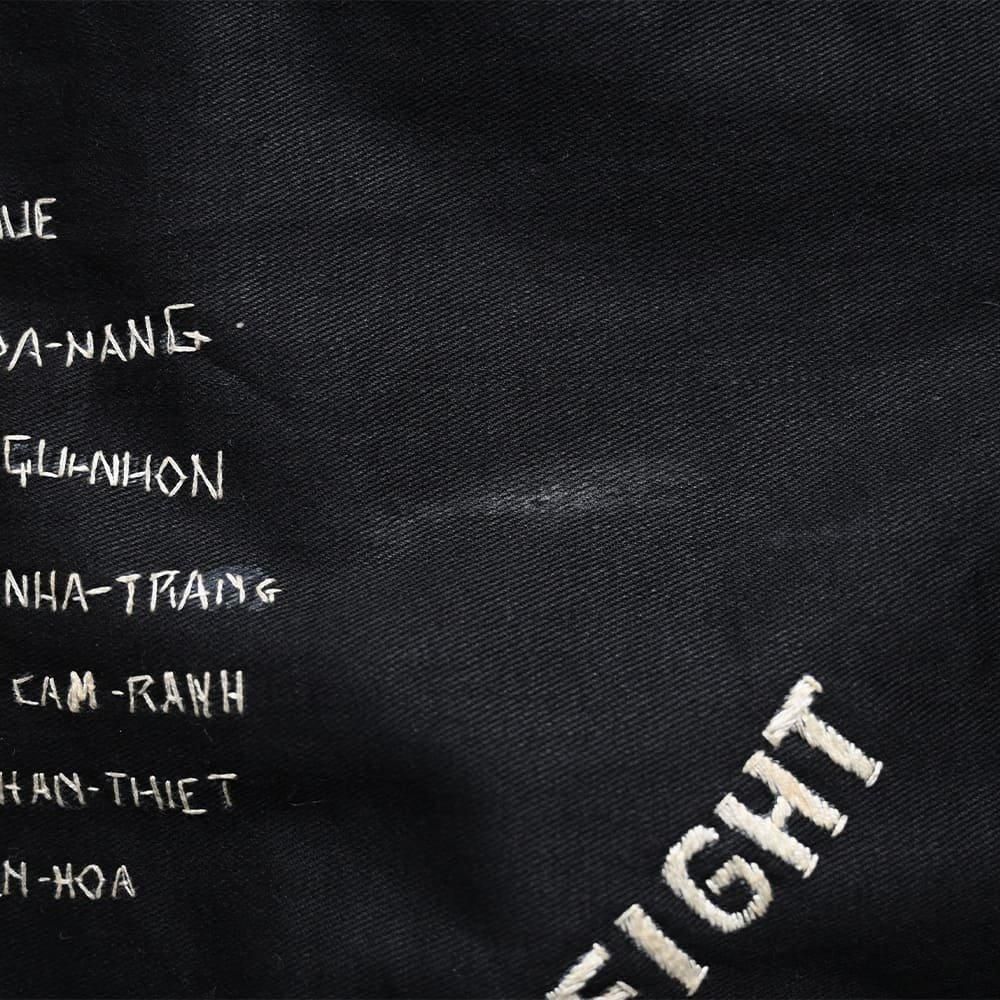 UE
DA-NANG
QUI-NHON
NHA-TRANG
CAM-RANH
HAN-THIET
N-HOA
FIGHT